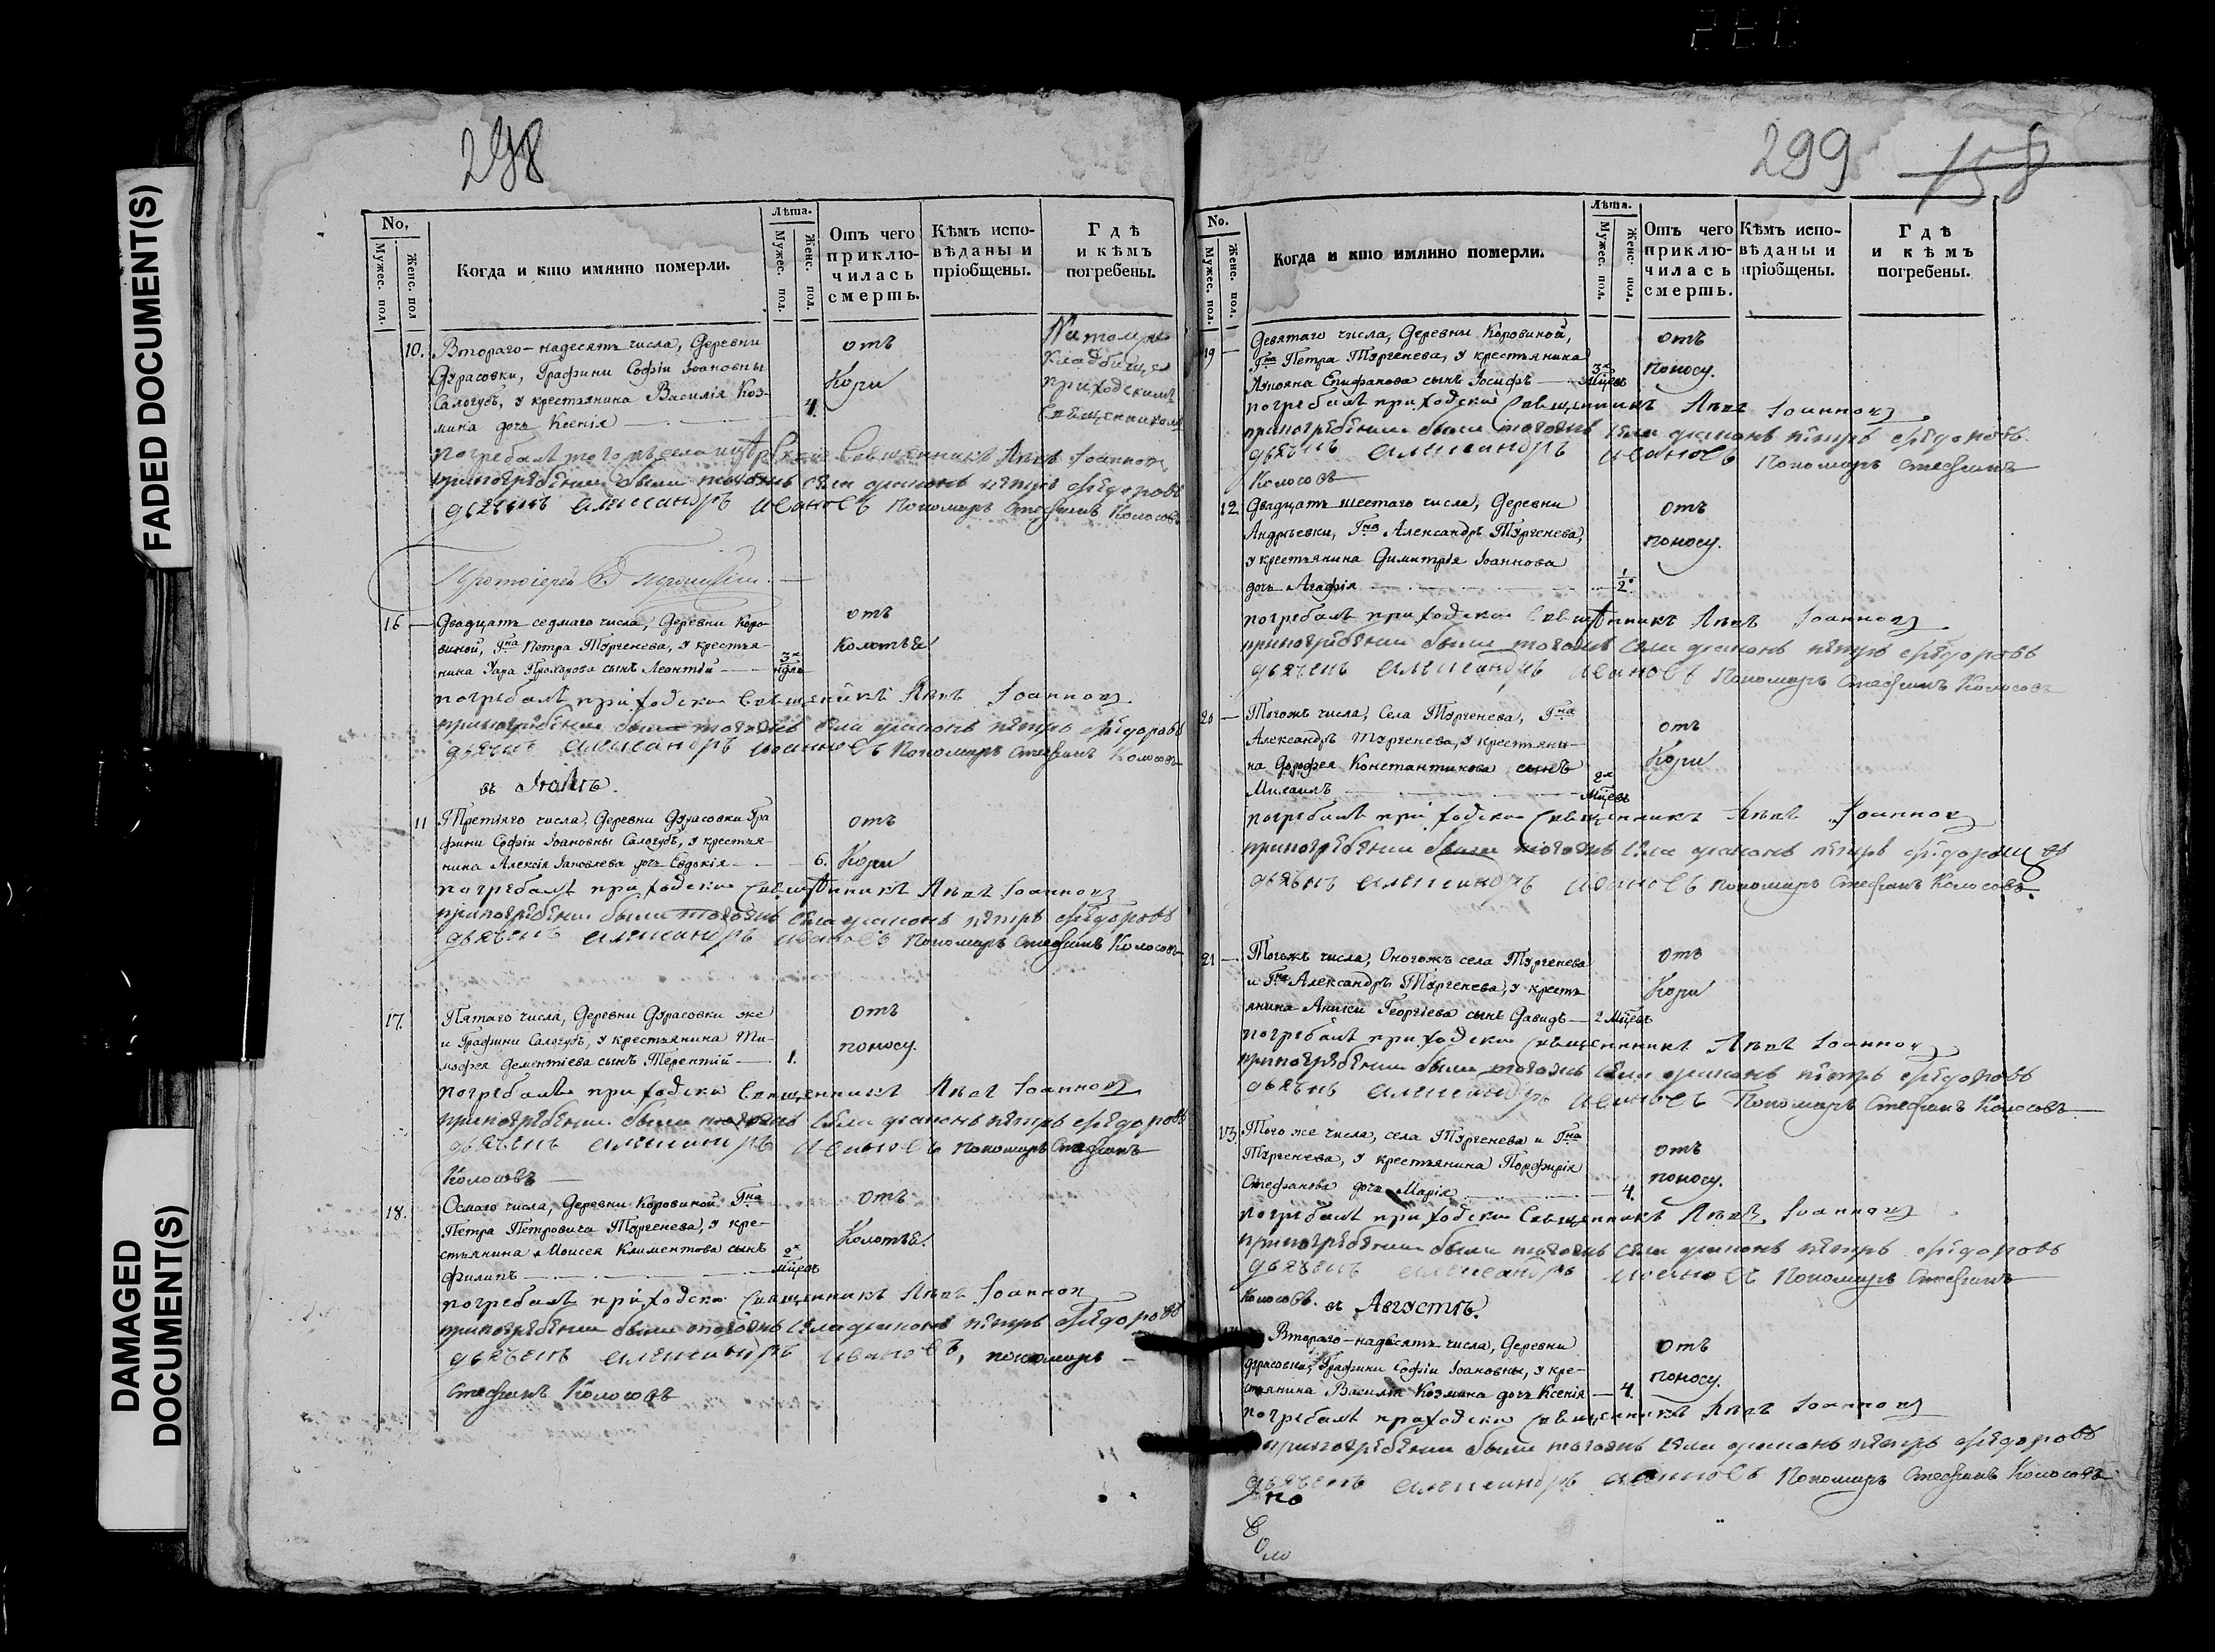 FADED DOCUMENT(S)
DAMAGED
DOCUMENT(S)
298
No.
Мужес. пол.
Женс. пол
Когда и кто имянно померли.
Лѣта.
Мужес. пол.
Женс. пол.
Отъ чего
приклю-
чилась
смерть.
Кѣмъ испо-
вѣданы и
пріобщены.
Гдѣ
и кѣмъ
погребены.
10. Втораго-надесять числа, Деревни
Дурасовки, Графини Софіи Іоанновны
Салогубъ, у крестьянина Василія Коз-
мина дочь Ксенія
4.
отъ
Кори
На томже
кладбище
приходскимъ
Священникомъ
Священникъ Левъ Іоанновъ
при погребеніи были тогожъ села диаконъ петръ ѳедоровъ
дьячекъ александръ ивановъ Пономарь Стефанъ Колосовъ
Протоіерей
16 — Двадцать седмаго числа, Деревни Коро-
виной, Гна Петра Тургенева, у крестья-
нина Уара Прохорова сынъ Леонтій
3х
ндѣл
отъ
колотья
погребалъ приходскои Священникъ Левъ Іоанновъ
при погребеніи были тогожъ села диаконъ петръ ѳедоровъ
дьячекъ александръ ивановъ Пономарь Стефанъ Колосовъ
въ Іюлѣ.
11 Третіяго числа, Деревни Дурасовки Гра
фини Софіи Іоанновны Салогубъ, у крестья-
нина Алексія Іаковлева дочь Евдокія
6.
отъ
Кори
погребалъ приходскои Священникъ Левъ Іоанновъ
при погребеніи были тогожъ села диаконъ петръ ѳедоровъ
дьячекъ александръ ивановъ Пономарь Стефанъ Колосовъ
17. Пятаго числа, Деревни Дурасовки же
и Графини Салогубъ, у крестьянина Ти-
моѳея Дементіева сынъ Терентій
1.
отъ
поносу.
погребалъ приходскои Священникъ Левъ Іоанновъ
при погребеніи были тогожъ села диаконъ петръ ѳедоровъ
дьячекъ александръ ивановъ Пономарь Стефанъ
Колосовъ
18. Осмаго числа, Деревни Коровиной Гна
Петра Петровича Тургенева, у кре-
стьянина Моисея Климентова сынъ
Филипъ
2х
мцовъ
отъ
Колотья.
погребалъ приходскои Священникъ Левъ Іоанновъ
при погребеніи были тогожъ села диаконъ петръ ѳедоровъ
дьячекъ александръ ивановъ, пономарь
Стефанъ Колосовъ
299
158
No.
Мужес. пол.
Женс. пол.
Когда и кто имянно померли.
Лѣта.
Мужес. пол.
Женс. пол.
Отъ чего
приклю-
чилась
смерть.
Кѣмъ испо-
вѣданы и
пріобщены.
Гдѣ
и кѣмъ
погребены.
19 — Девятаго числа, Деревни Коровиной,
Гна Петра Тургенева, у крестьянина
Лупояна Епифанова сынъ Іосифъ
3х
Мцовъ
отъ
поносу.
погребалъ приходскои Священникъ Левъ Іоанновъ
при погребеніи были тогожъ села диаконъ петръ ѳедоровъ
дьячекъ александръ ивановъ Пономарь Стефанъ
Колосовъ
12. Двадцать шестаго числа, Деревни
Андреевки, Гна Александръ Тургенева,
у крестьянина Димитрія Іоаннова
дочь Агафія
1/2.
отъ
поносу.
погребалъ приходскои Священникъ Левъ Іоанновъ
при погребеніи были тогожъ села диаконъ петръ ѳедоровъ
дьячекъ александръ ивановъ Пономарь Стефанъ Колосовъ
20 — Тогожъ числа, Села Тургенева, Гна
Александръ Тургенева, у крестьяни-
на Дороѳея Константинова сынъ
Михаилъ
2х
Мцовъ
отъ
Кори
погребалъ приходскои Священникъ Левъ Іоанновъ
при погребеніи были тогожъ села диаконъ петръ
дьячекъ александръ ивановъ пономарь Стефанъ Колосовъ.
21 — Тогожъ числа, Оногожъ села Тургенева
и Гна Александръ Тургенева, у кресть
янина Аникіи Георгіева сынъ Давидъ — 2 Мцовъ
отъ
Кори
погребалъ приходскои Священникъ Левъ Іоанновъ
при погребеніи были тогожъ села диаконъ петръ ѳедоровъ
дьячекъ александръ ивановъ Пономарь Стефанъ Колосовъ
13. Того же числа, села Тургенева и Гна
Тургенева, у крестьянина Порфирія
Стефанова дочь Марія
4.
отъ
поносу.
погребалъ приходскои Священникъ Левъ Іоанновъ
при погребеніи были тогожъ села диаконъ петръ ѳедоровъ
дьячекъ александръ ивановъ Пономарь Стефанъ
Колосовъ. въ Августѣ.
Втораго-надесять числа, Деревни
Дурасовки, Графини Софіи Іоанновны, у кре-
стьянина Василія Козмина дочь Ксенія — 4.
отъ
поносу.
погребалъ приходскои Священникъ Левъ Іоанновъ
при погребеніи были тогожъ села диаконъ петръ ѳедоровъ
дьячекъ александръ ивановъ Пономарь Стефанъ Колосовъ
по